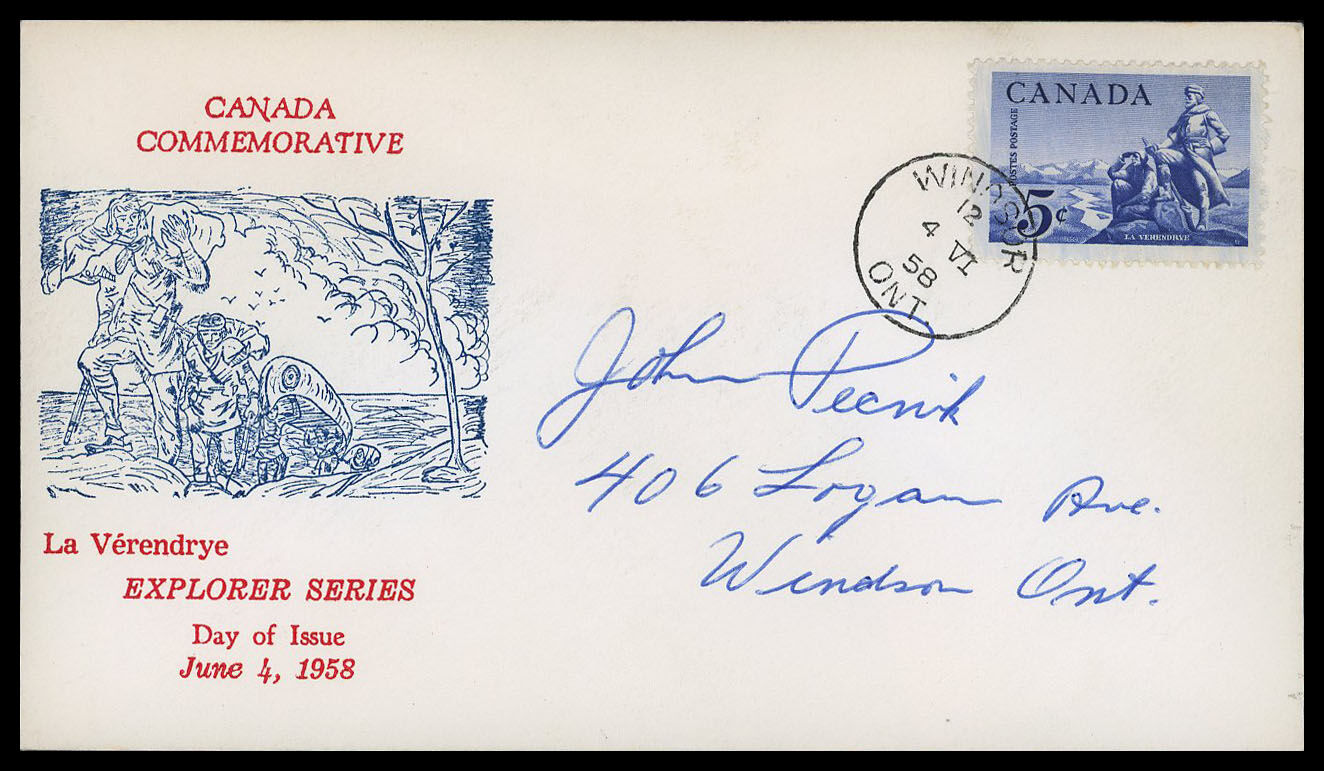 CANADA
COMMEMORATIVE
La Vérendrye
EXPLORER SERIES
Day of Issue
June 4, 1958
CANADA
POSTES POSTAGE
5¢
LA VERENDRYE
WINDSOR
12
4 VI
58
ONT.
John Pecnik
406 Logan Ave.
Windsor Ont.